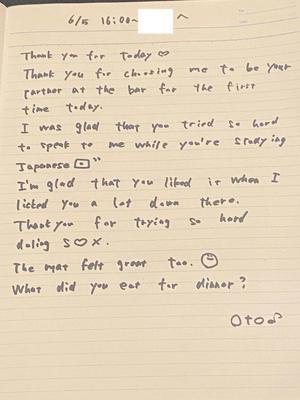 6/5 16:00~ へ
Thank you for today ♡
Thank you for choosing me to be your
partner at the bar for the first
time today.
I was glad that you tried so hard
to speak to me while you're studying
Japanese
I'm glad that you liked it when I
licked you a lot down there.
Thank you for trying so hard
doling S♡X.
The mat felt great too. ☺
What did you eat for dinner?